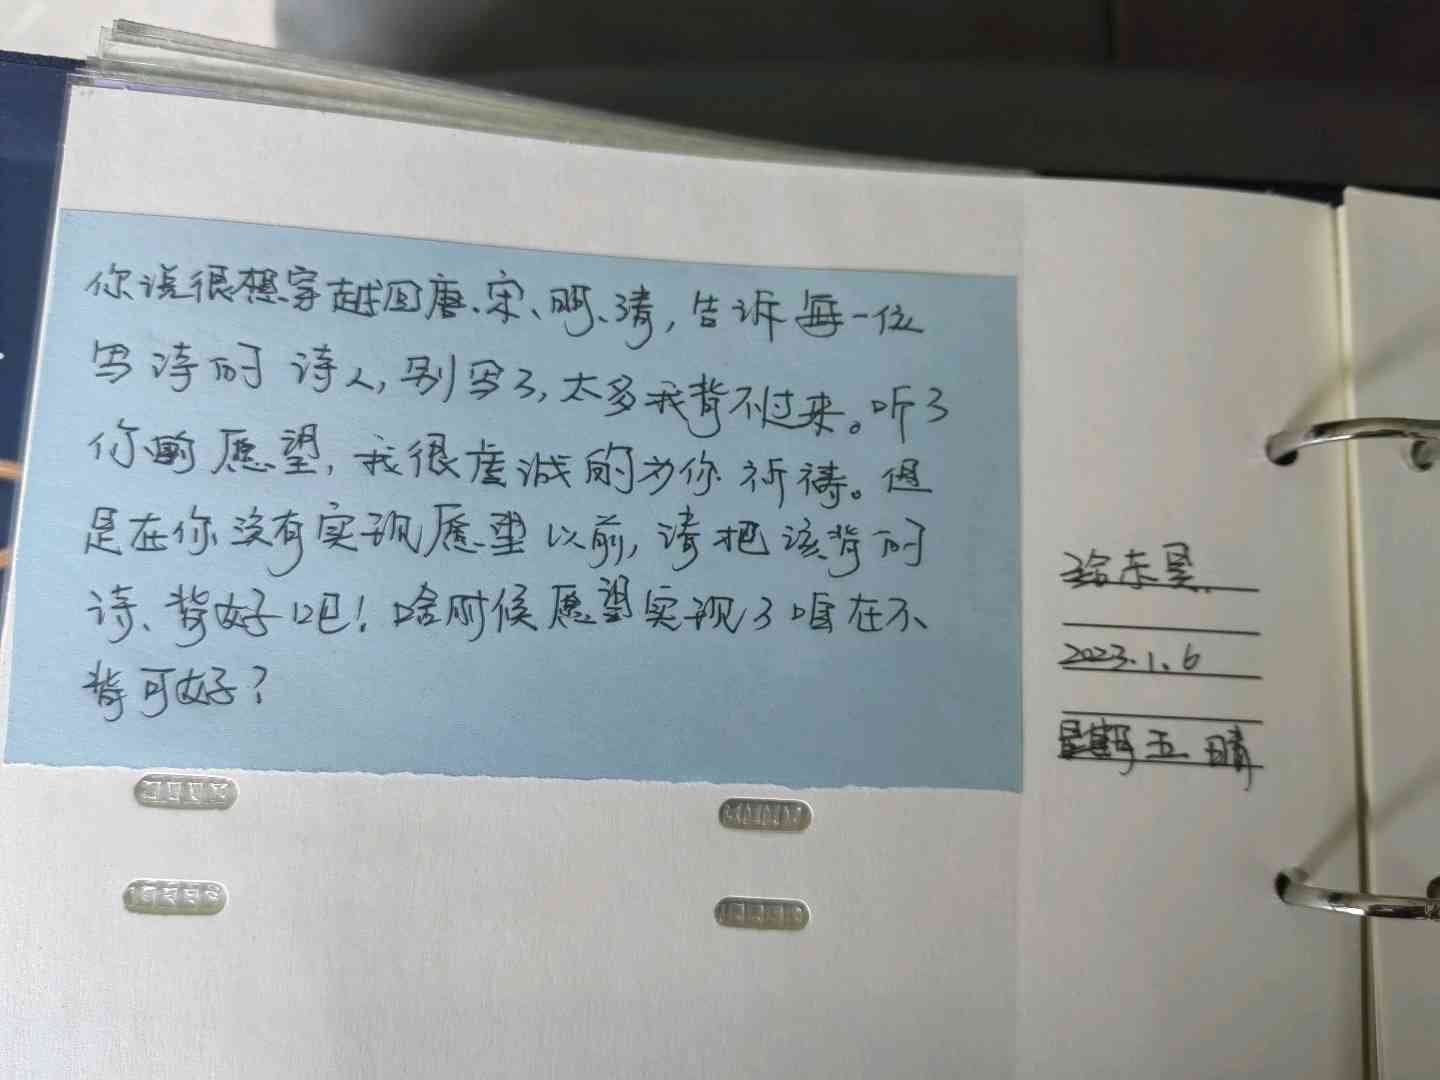 你说很想穿越回唐、宋、明、清，告诉每一位
写诗的诗人，别写了，太多我背不过来。听了
你的愿望，我很虔诚的为你祈祷。但
是在你没有实现愿望以前，请把该背的
诗、背好吧！啥时候愿望实现了咱在不
背可好？
给东昱
2023.1.6
星期五 晴